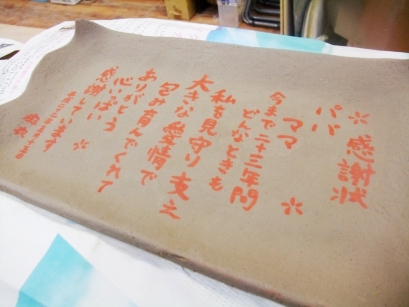 ※ 感謝状 ※
パパ
ママ
今まで二十三年間
どんなときも
私を見守り 支え
大きな愛情で
包み育んでくれて
ありがとう
心いっぱい
感謝しています ※